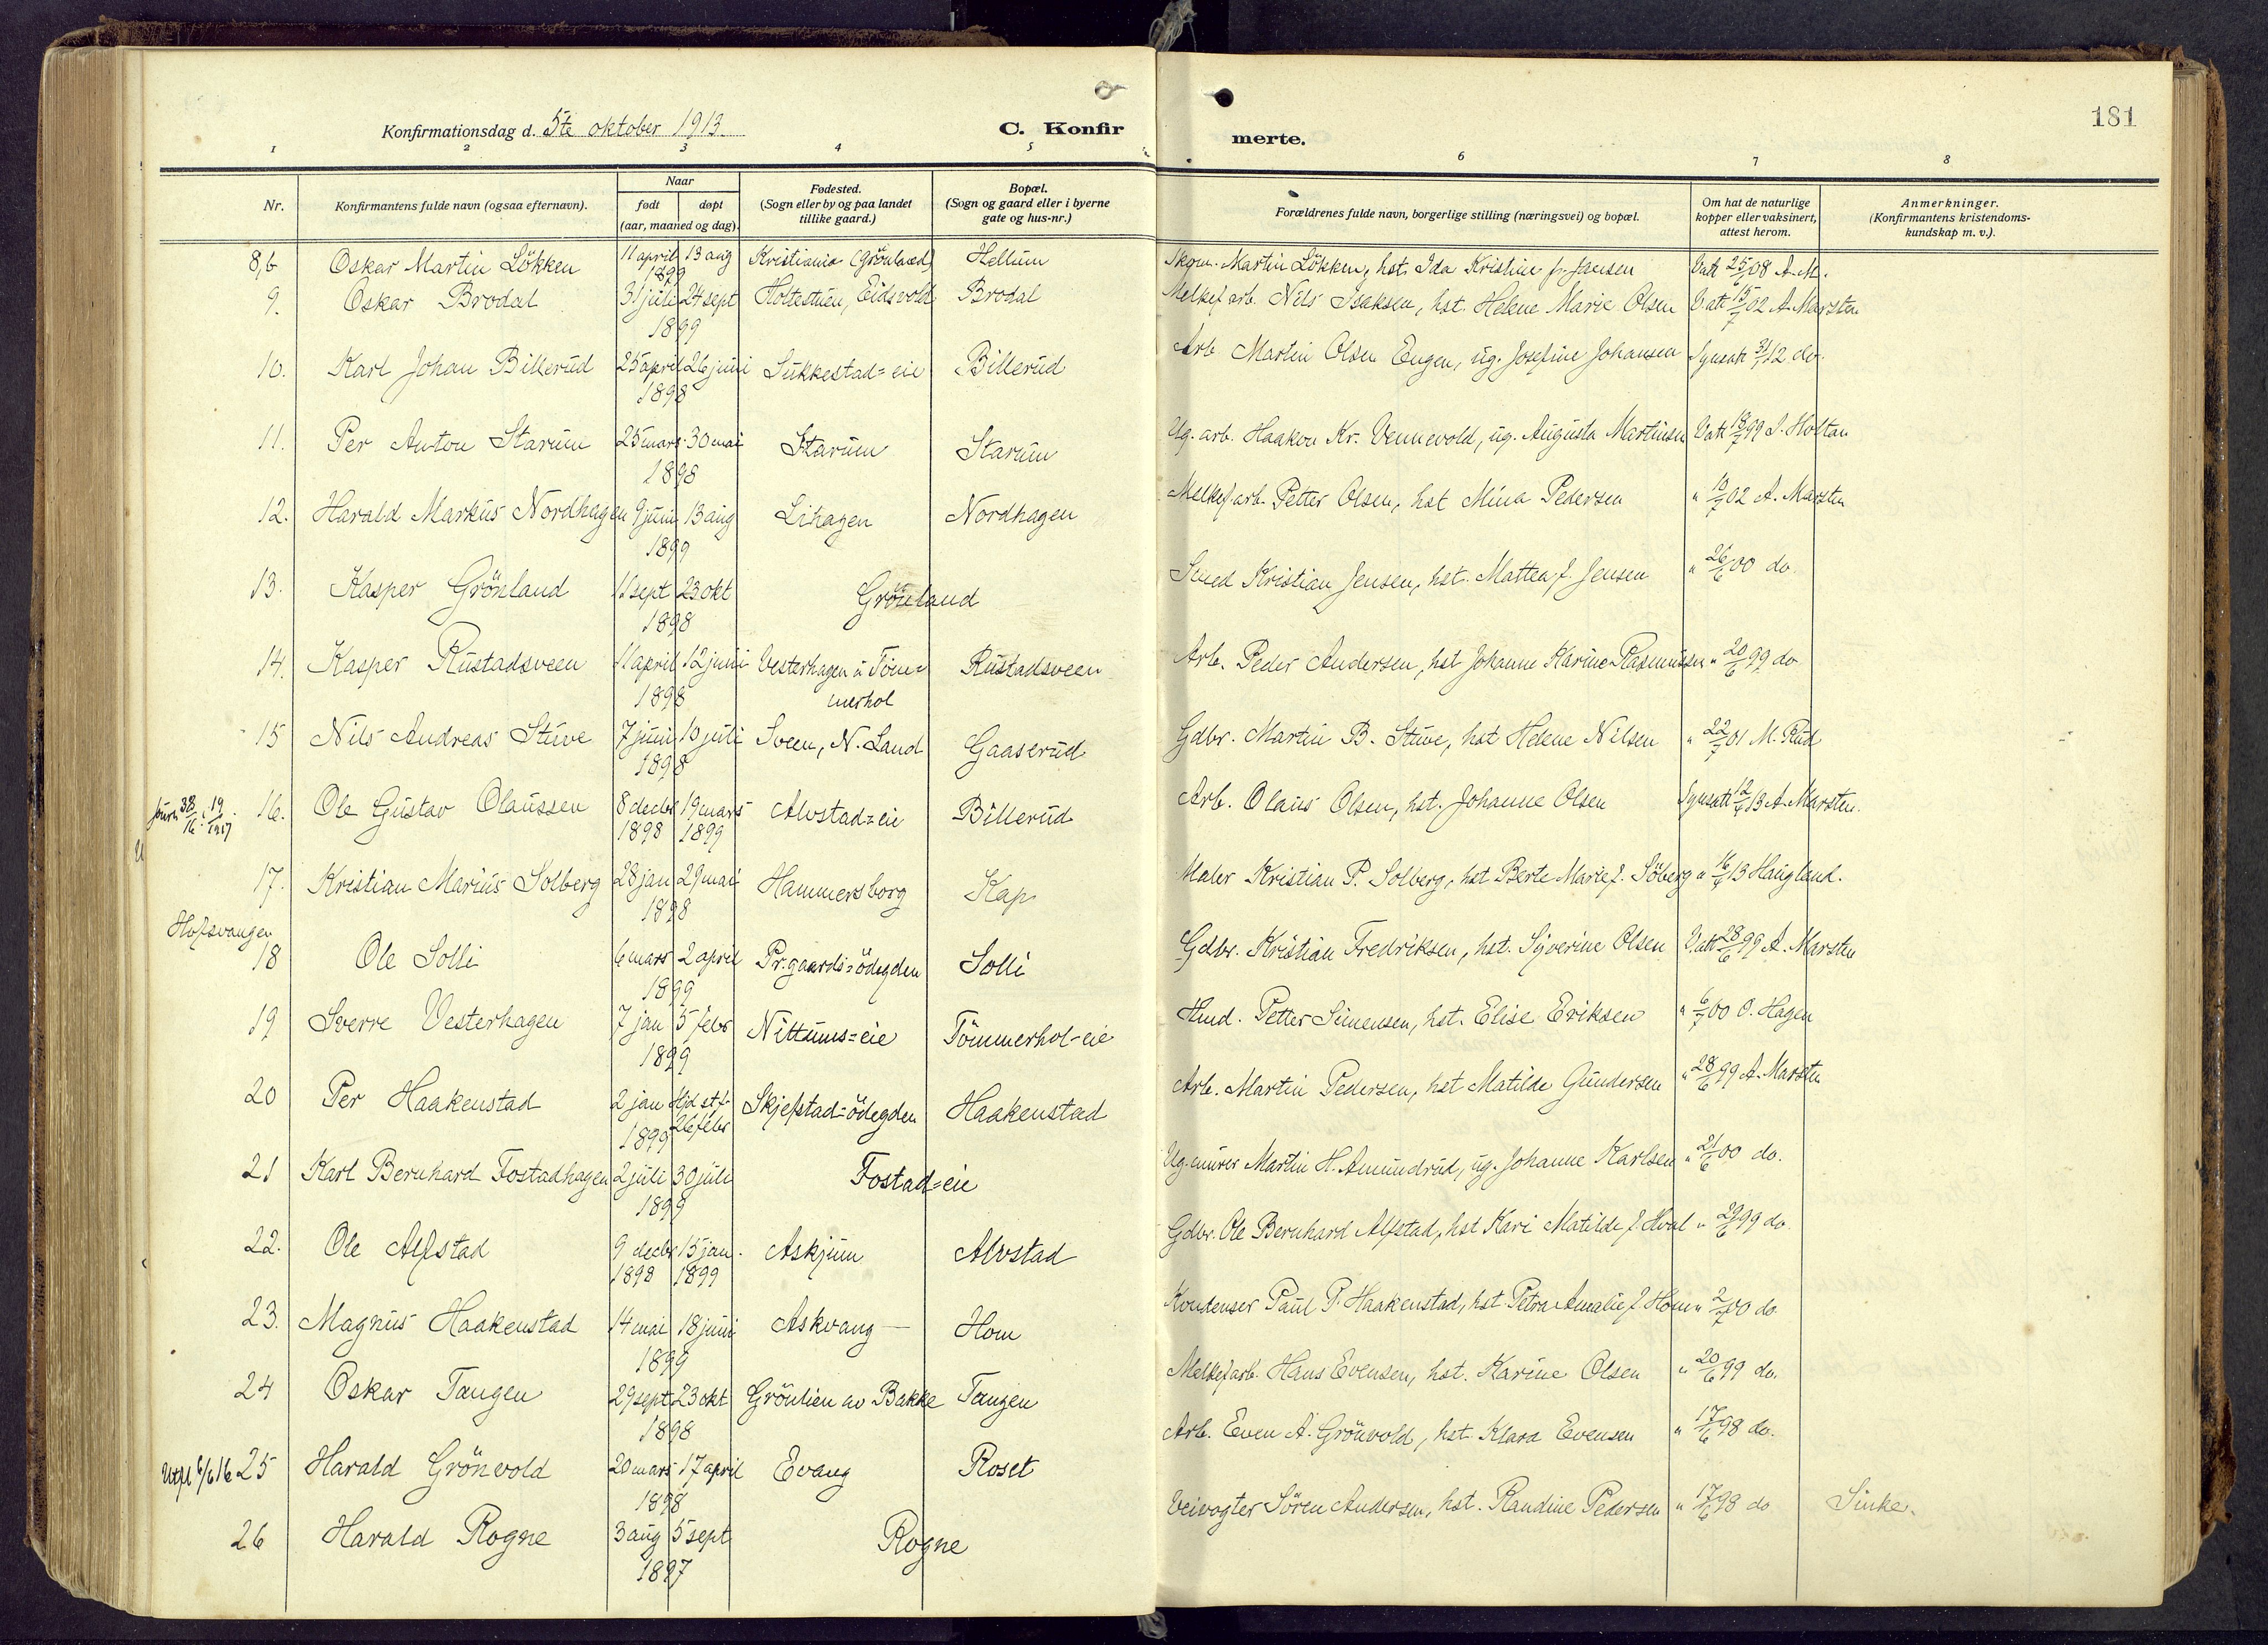 181
Konfirmationsdag d. 5te oktober 1913.
C. Konfirmerte.
1 2 3 4 5 6 7 8
Nr.
Konfirmantens fulde navn (ogsaa efternavn).
Naar
født
døpt
(aar, maaned og dag).
Fødested.
(Sogn eller by og paa landet
tillike gaard.)
Bopæl.
(Sogn og gaard eller i byerne
gate og hus-nr.)
Forældrenes fulde navn, borgerlige stilling (næringsvei) og bopæl.
Om hat de naturlige
kopper eller vaksinert,
attest herom.
Anmerkninger.
(Konfirmantens kristendoms-
kundskap m. v.).
8,b Oskar Martin Lökken 11 april 13 aug 1899 Kristiania (Grönland) Hellum Martin Lökken, hst. Ida Kristine f. Jansen Vatt 25/6 08 A. M.
9. Oskar Brodal 31 juli 24 sept 1899 Holtestuen, Eidsvold Brodal Melkef arb. Nils Isaksen, hst. Helene Marie Olsen Vatt 15/7 02 A. Marsten
10. Karl Johan Billerud 25 april 26 juni 1898 Sukkestad=eie Billerud Arb. Martin Olsen Engen, ug. Josefine Johansen Synsatt 31/ 12 do.
11. Per Anton Starum 25 mars 30 mai 1898 Starum Starum Ug. arb. Haakon Kr. Vennevold, ug. Augusta Martinsen Vatt 99 S. Holtan
12. Harald Markus Nordhagen 9 juni 13 aug 1899 Lihagen Nordhagen Melkef. arb. Petter Olsen, hst Mina Pedersen " 10/7 02 A. Marsten
13. Kasper Grönland 11 sept 23 okt 1898 Grönland Smed Kristian Jensen, hst. Mattea f. Jensen " 26/6 00 do.
14. Kasper Rustadsveen 11 april 12 juni 1898 Vesterhagen u Töm=merhol Rustadsveen Arb. Peder Andersen, hst Johanne Karine Rasmussen " 20/6 99 do
15 Nils Andreas Stuve 7 juni 10 juli 1898 Sveen, N. Land Gaaserud Gdbr. Martin B. Stuve, hst Helene Nilsen " 22/7 01 M. Rud
16. Ole Gustav Olaussen 8 decbr 1898 19 mars 1899 Alvstad=eie Billerud Arb. Olaus Olsen, hst. Johanne Olsen Synsatt 13 A. Marsten.
17. Kristian Marius Solberg 28 jan 29 mai 1898 Hammersborg Kap Maler Kristian P. Solberg, hst Berte Marie f. Söberg " 13 Haugland.
Hofsvangen
18 Ole Solli 6 mars 2 april 1899 Pr.gaards=ödegden Solli Gdbr. Kristian Fredriksen, hst. Syverine Olsen Vatt 28/6 99 A. Marsten
19 Sverre Vesterhagen 7 jan 5 febr 1899 Nittums=eie Tömmerhol-eie Hmd. Petter Simensen, hst. Elise Eriksen " 6/7 00 O. Hagen
20 Per Haakenstad 2 jan 1899 Hjd. st. f. 26 febr Skjefstad=ödegden Haakenstad Arb. Martin Pedersen, hst Matilde Gundersen " 28/6 99 A. Marsten
21 Karl Bernhard Fostadhagen 2 juli 30 juli 1899 Fostad=eie Ug. murer Martin H. Amundrud, ug. Johanne Karlsen " 21/6 00 do.
22. Ole Alfstad 9 decbr 1898 15 jan. 1899 Askjum Alvstad Gdbr. Ole Bernhard Alfstad, hst Kari Matilde f. Hval " 29/6 99 do.
23. Magnus Haakenstad 14 mai 18 juni 1899 Askvang Hom Kondenser Paul P. Haakenstad, hst Petra Amalie f. Hom " 2/7 00 do
24 Oskar Tangen 29 sept 23 okt 1898 Grönlien av Bakke Tangen Melkef arb. Hans Evensen, hst. Karine Olsen " 20/6 99 do.
Utfl 6/6 16 25 Harald Grönvold 20 mars 17 april 1898 Evang Roset Arb. Even A. Grönvold, hst. Klara Evensen " 17/6 98 do.
26 Harald Rogne 3 aug 5 sept 1897 Rogne Veivogter Sören Andersen, hst. Randine Pedersen " 17/6 98 do Sinke.